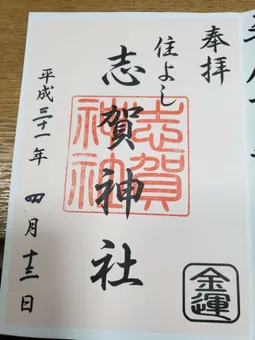 奉拝
住よし
志賀神社
平成三十一年 四月十三日
志賀
神社
金運